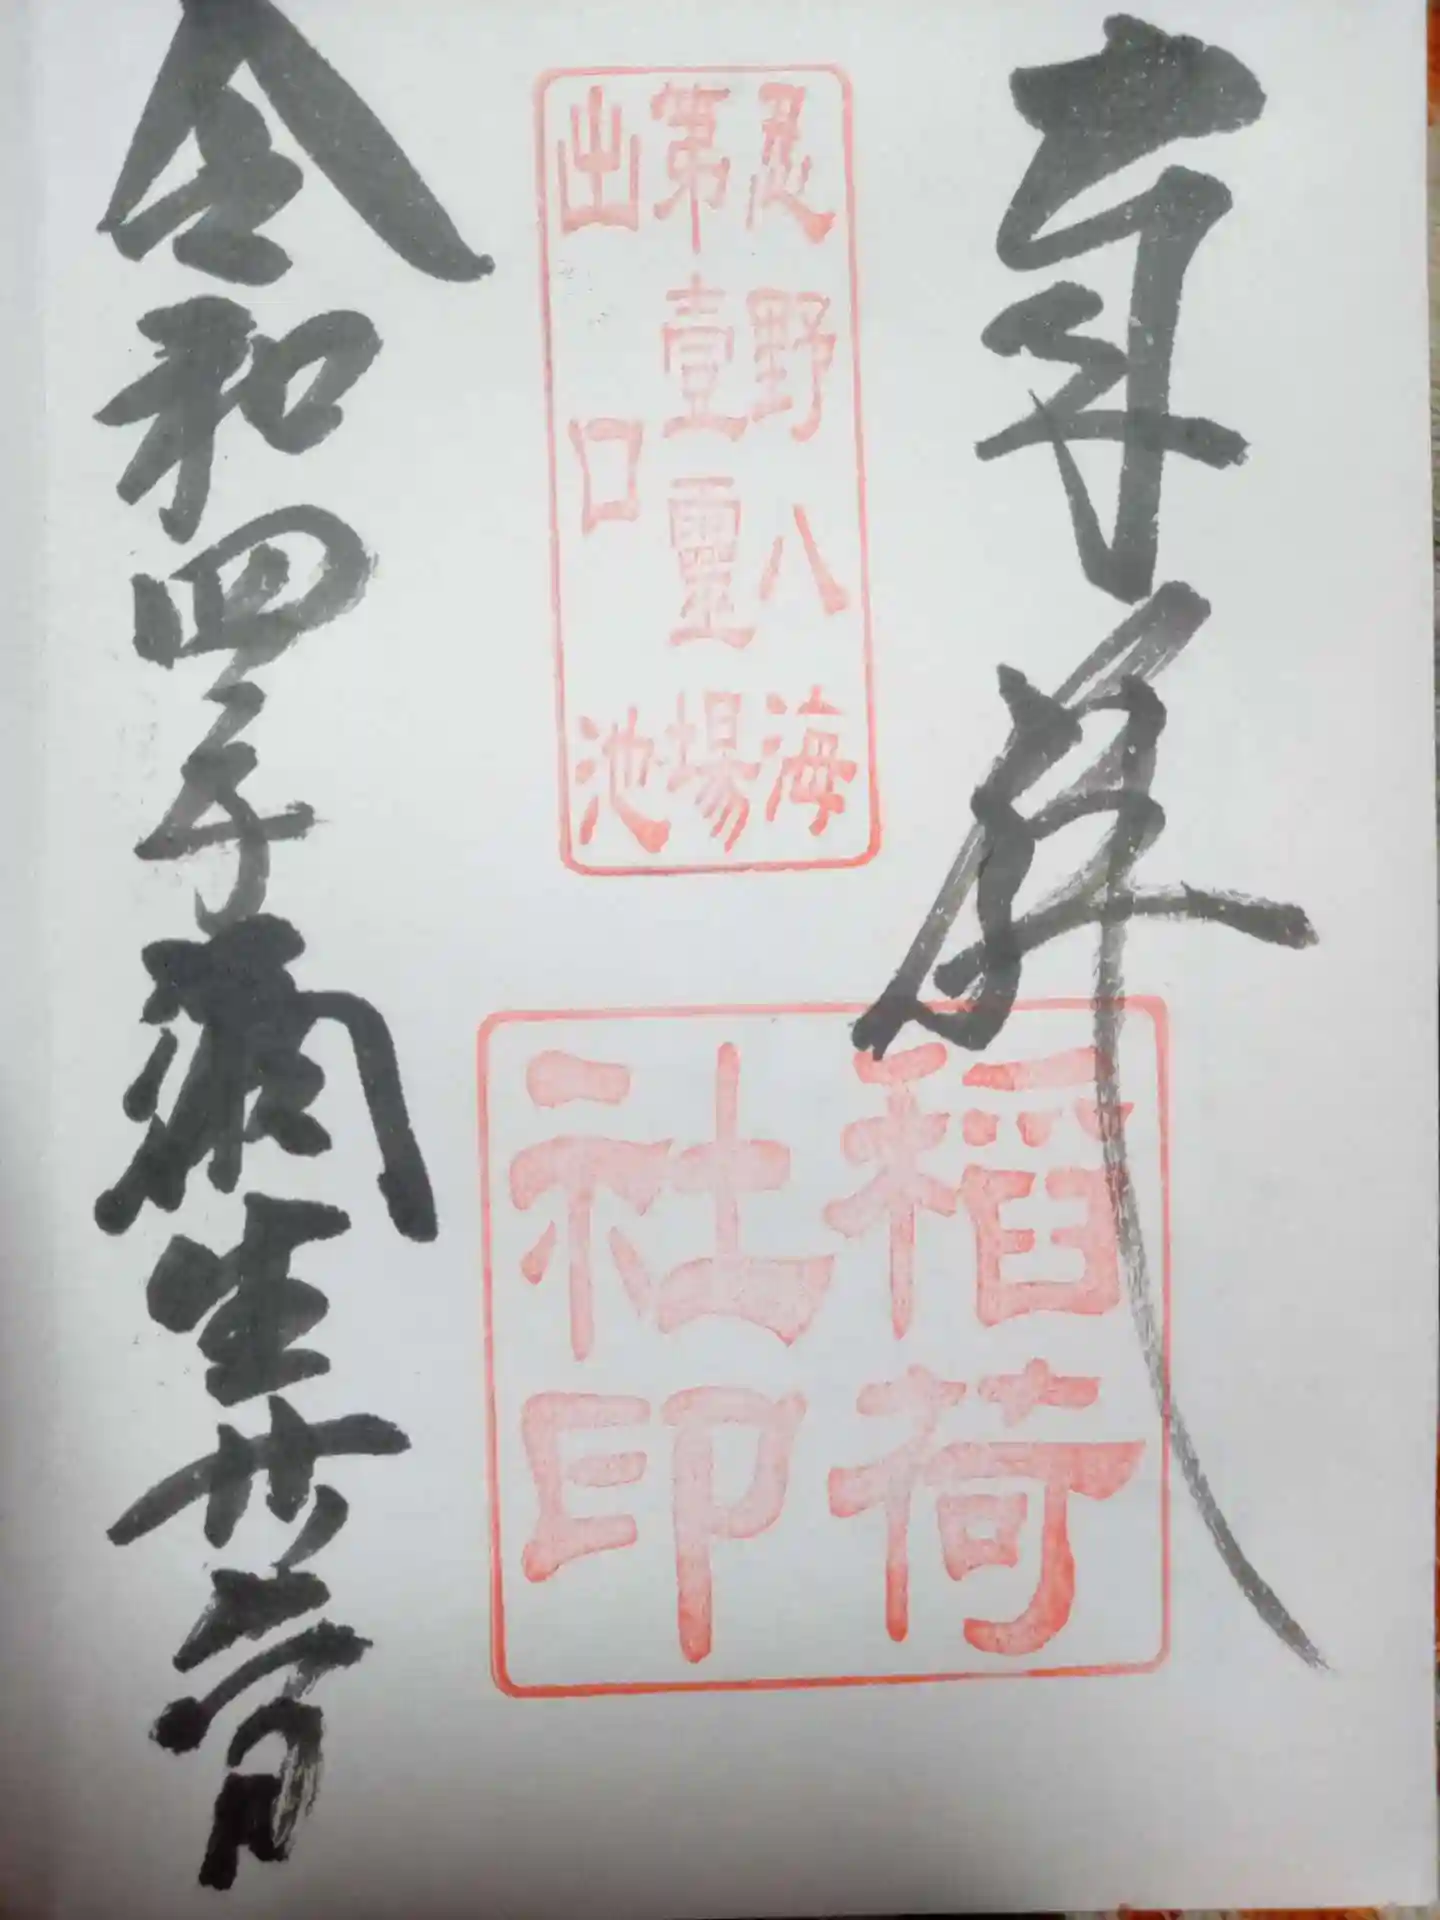 奉拝
忍野八海
第壹靈場
出口池
稲荷
社印
令和四年彌生廿日